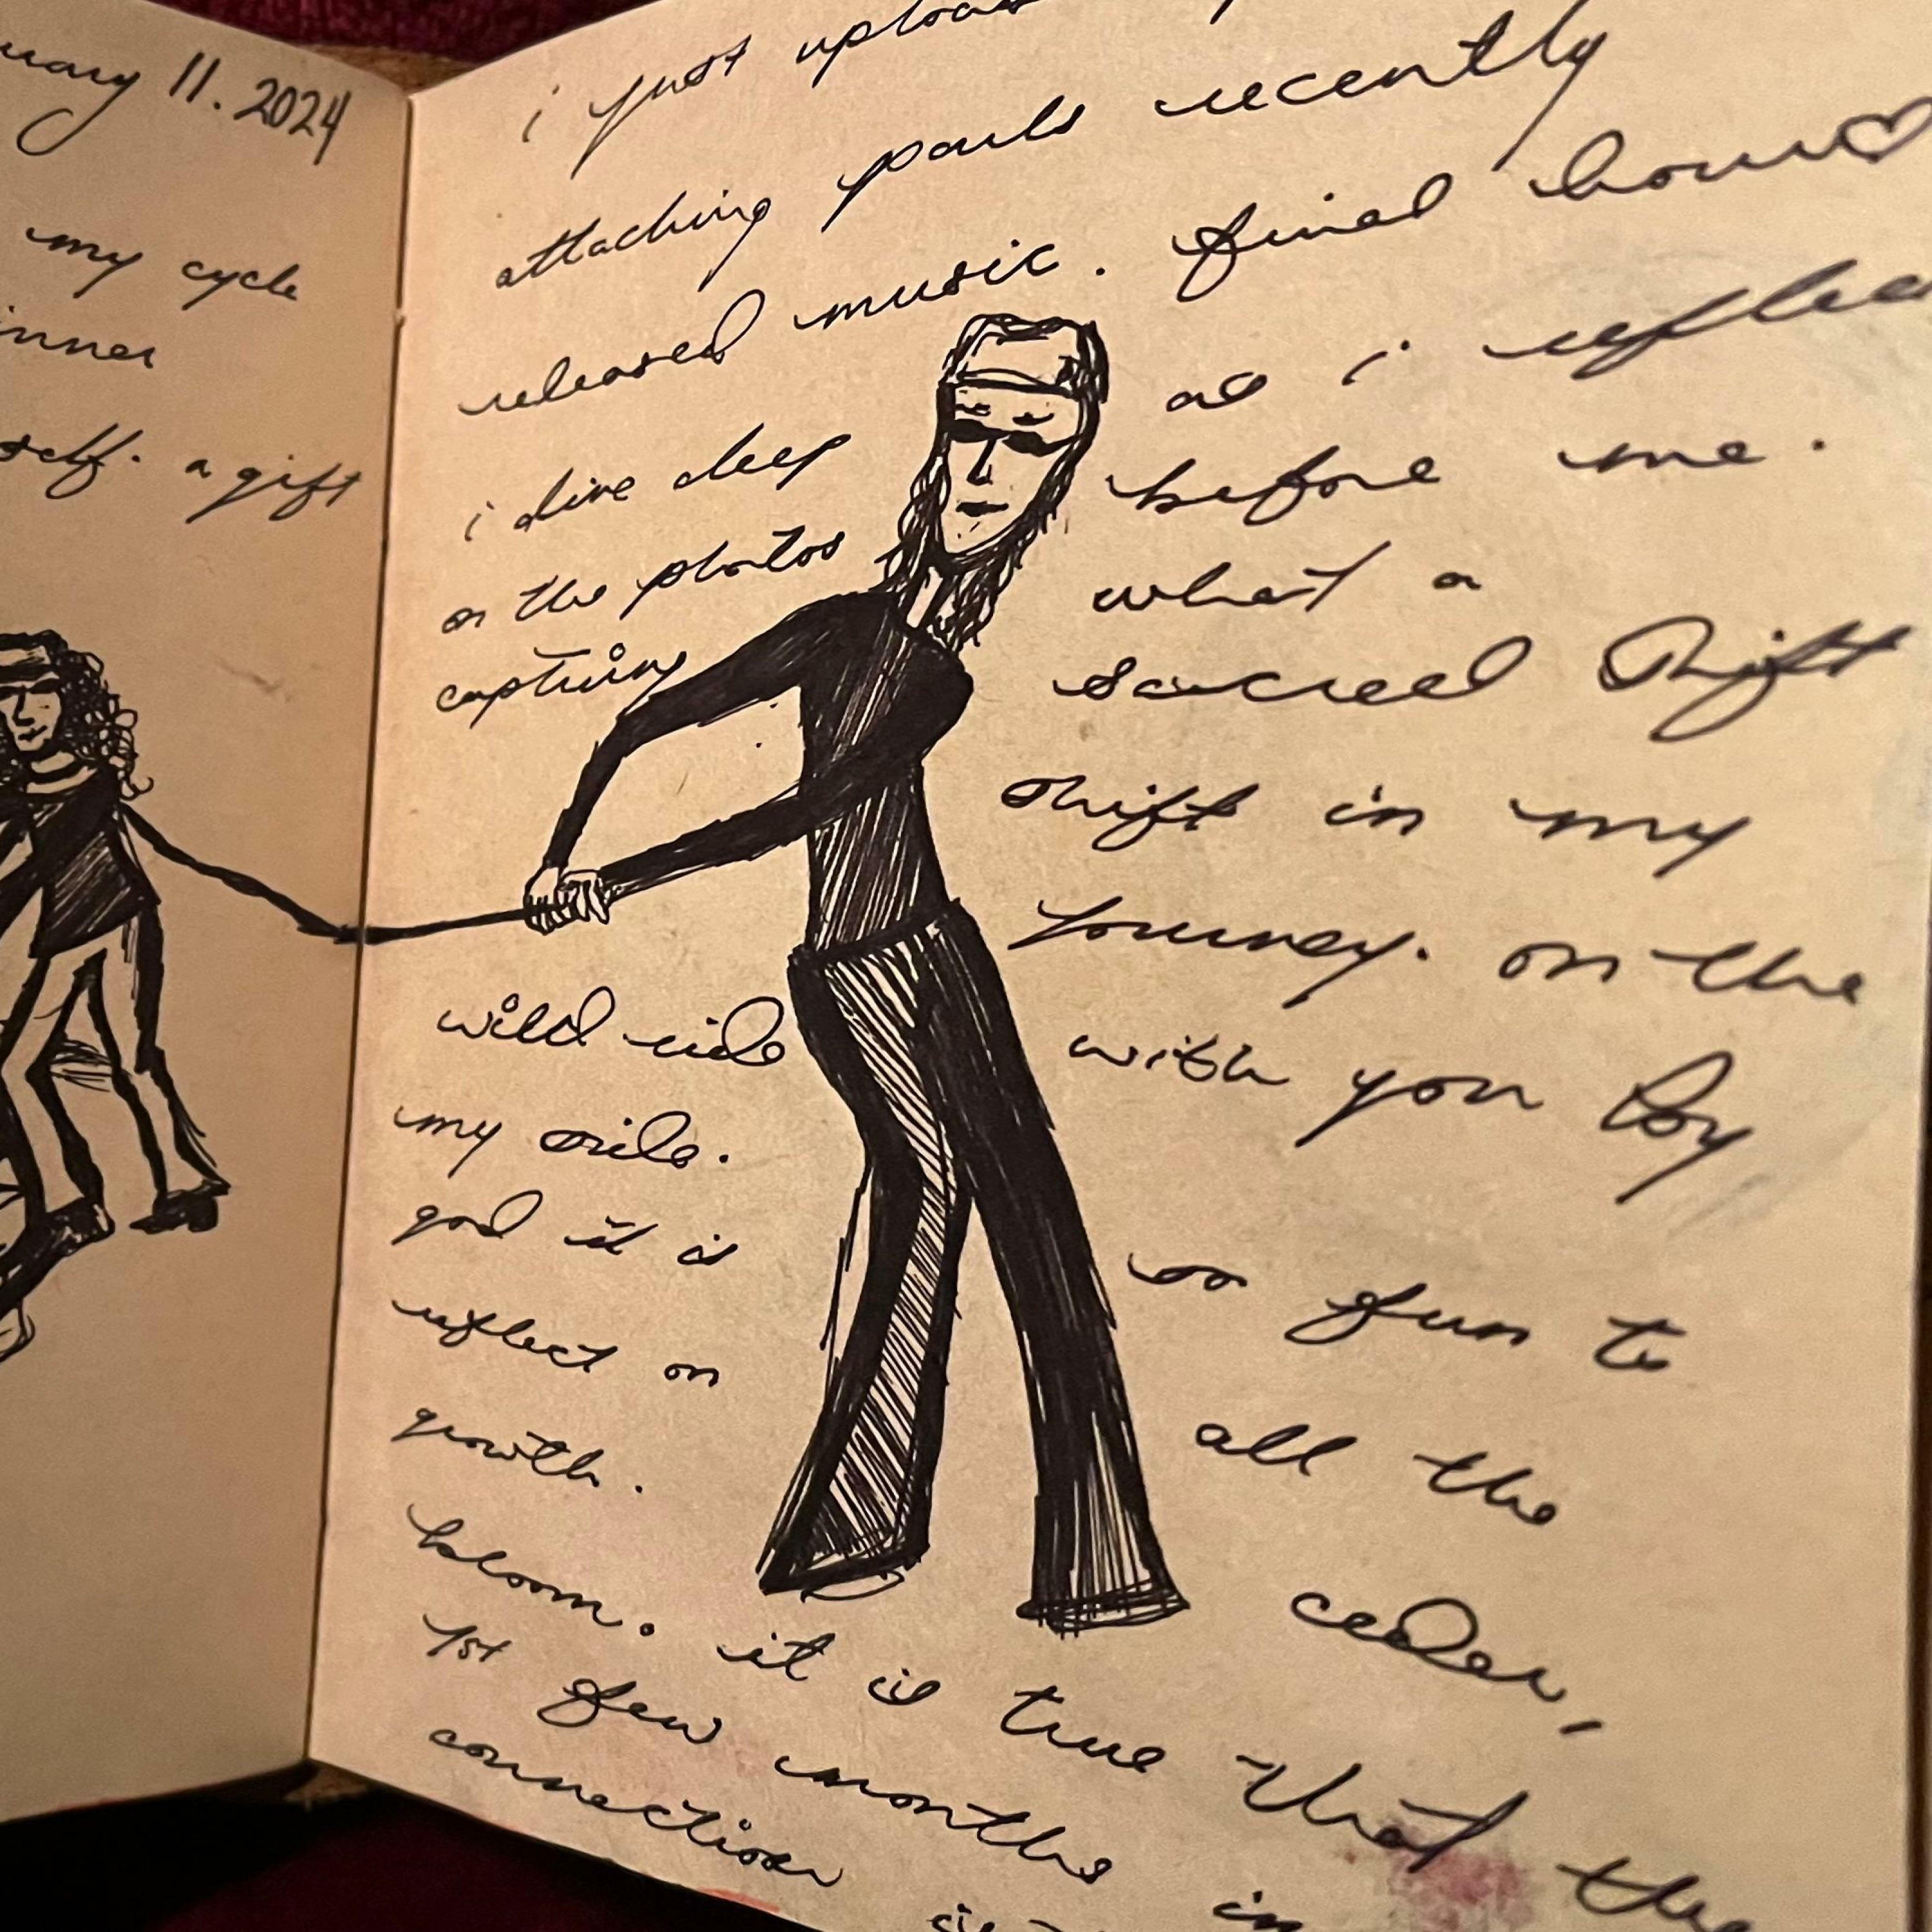 uary 11. 2024
my cycle
inner
self. a gift
i just uploa
attaching pauls recently
released music. final hour♡
as i reflec
i dive deep before me.
on the photos what a
capturing sacred shift
shift in my
journey. on the
wild ride with you by
my side.
god it is so fun to
reflect on all the
growth.
bloom. ceder,
it is true that the
1st few months in
connection